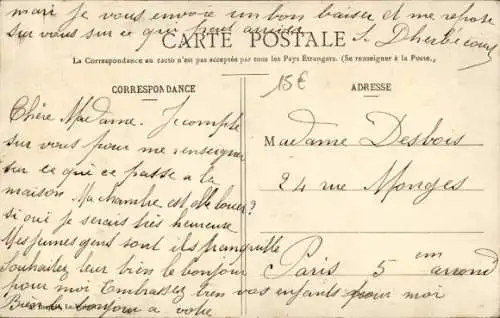 mari je vous envoie un bon baiser et me repose
sur vous sur ce que peut arriver
CARTE POSTALE
La Correspondance au recto n'est pas acceptée par tous les Pays Étrangers. (Se renseigner à la Poste.)
15€
CORRESPONDANCE
ADRESSE
Chère Madame. Je compte
sur vous pour me renseigner
sur ce que ce passe a la
maison. Ma chambre est elle louer?
si oui je serais très heureuse
Mes jeunes gens sont ils tranquille
souhaitez leur bien le bonjour
pour moi Embrassez bien vos enfants pour moi
Bien le bonjour a votre
Madame Desbois
24 rue Monges
Paris 5em arrond